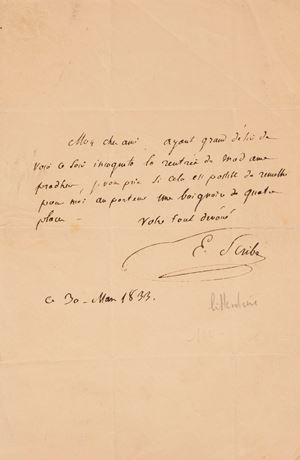 Mon cher ami. ayant grand désir de
voir ce soir incognito la rentrée de Madame
pradher, je vous prie si cela est possible de remettre
pour moi au porteur une baignoire de quatre
places -
Votre tout dévoué
E. Scribe
ce 30 - Mars 1833.
littérature